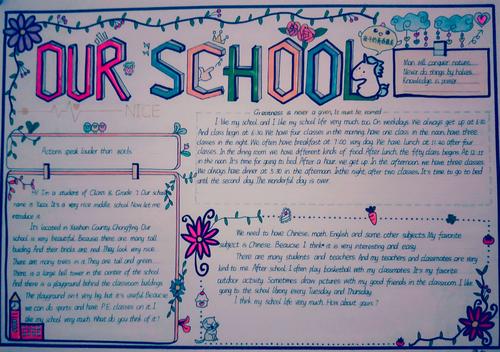 OUR SCHOOL
NICE
Man will conquer nature.
Never do things by halves.
Knowledge is power.
Actions speak louder than words
Greatness is never a given, It must be earned
I like my school and I like my school life very much too. On weekdays. We always get up at 6:10.
And class begin at 6:50. We have four classes in the morning, have one class in the noon, have three
classes in the night. We often have breakfast at 7:00 very day. We have lunch at 11:40 after four
classes. In the dining room we have different kinds of food. After lunch the fifty class begins At
in the noon. It's time for going to bed. After a hour, we get up. In the afternoon, we have three classes.
We always have dinner at 5:30 in the afternoon. In the night, after two classes. It's time to go to bed
until the second day. The wonderful day is over.
I'm a student of Class 6 Grade 7. Our school
name is It's a very nice middle school. Now let me
introduce it.
It's located in Xiushan County, Chongqing. Our
school is very beautiful. Because there are many tall
building. And their bricks are red. They look very nice.
There are many trees in it. They are tall and green.
There is a large bell tower in the center of the school.
And there is a playground behind the classroom buildings.
The playground isn't very big but it's useful. Because
we can do sports and have P.E. classes on it. I
like my school very much. What do you think of it?
We need to have Chinese, math, English and some other subjects. My favorite
subject is Chinese. Because I think it is very interesting and easy.
There are many students and teachers. And my teachers and classmates are very
kind to me. After school, I often play basketball with my classmates. It's my favorite
outdoor activity. Sometimes draw pictures with my good friends in the classroom. I like
going to the school library every Tuesday and Thursday.
I think my school life very much. How about yours?